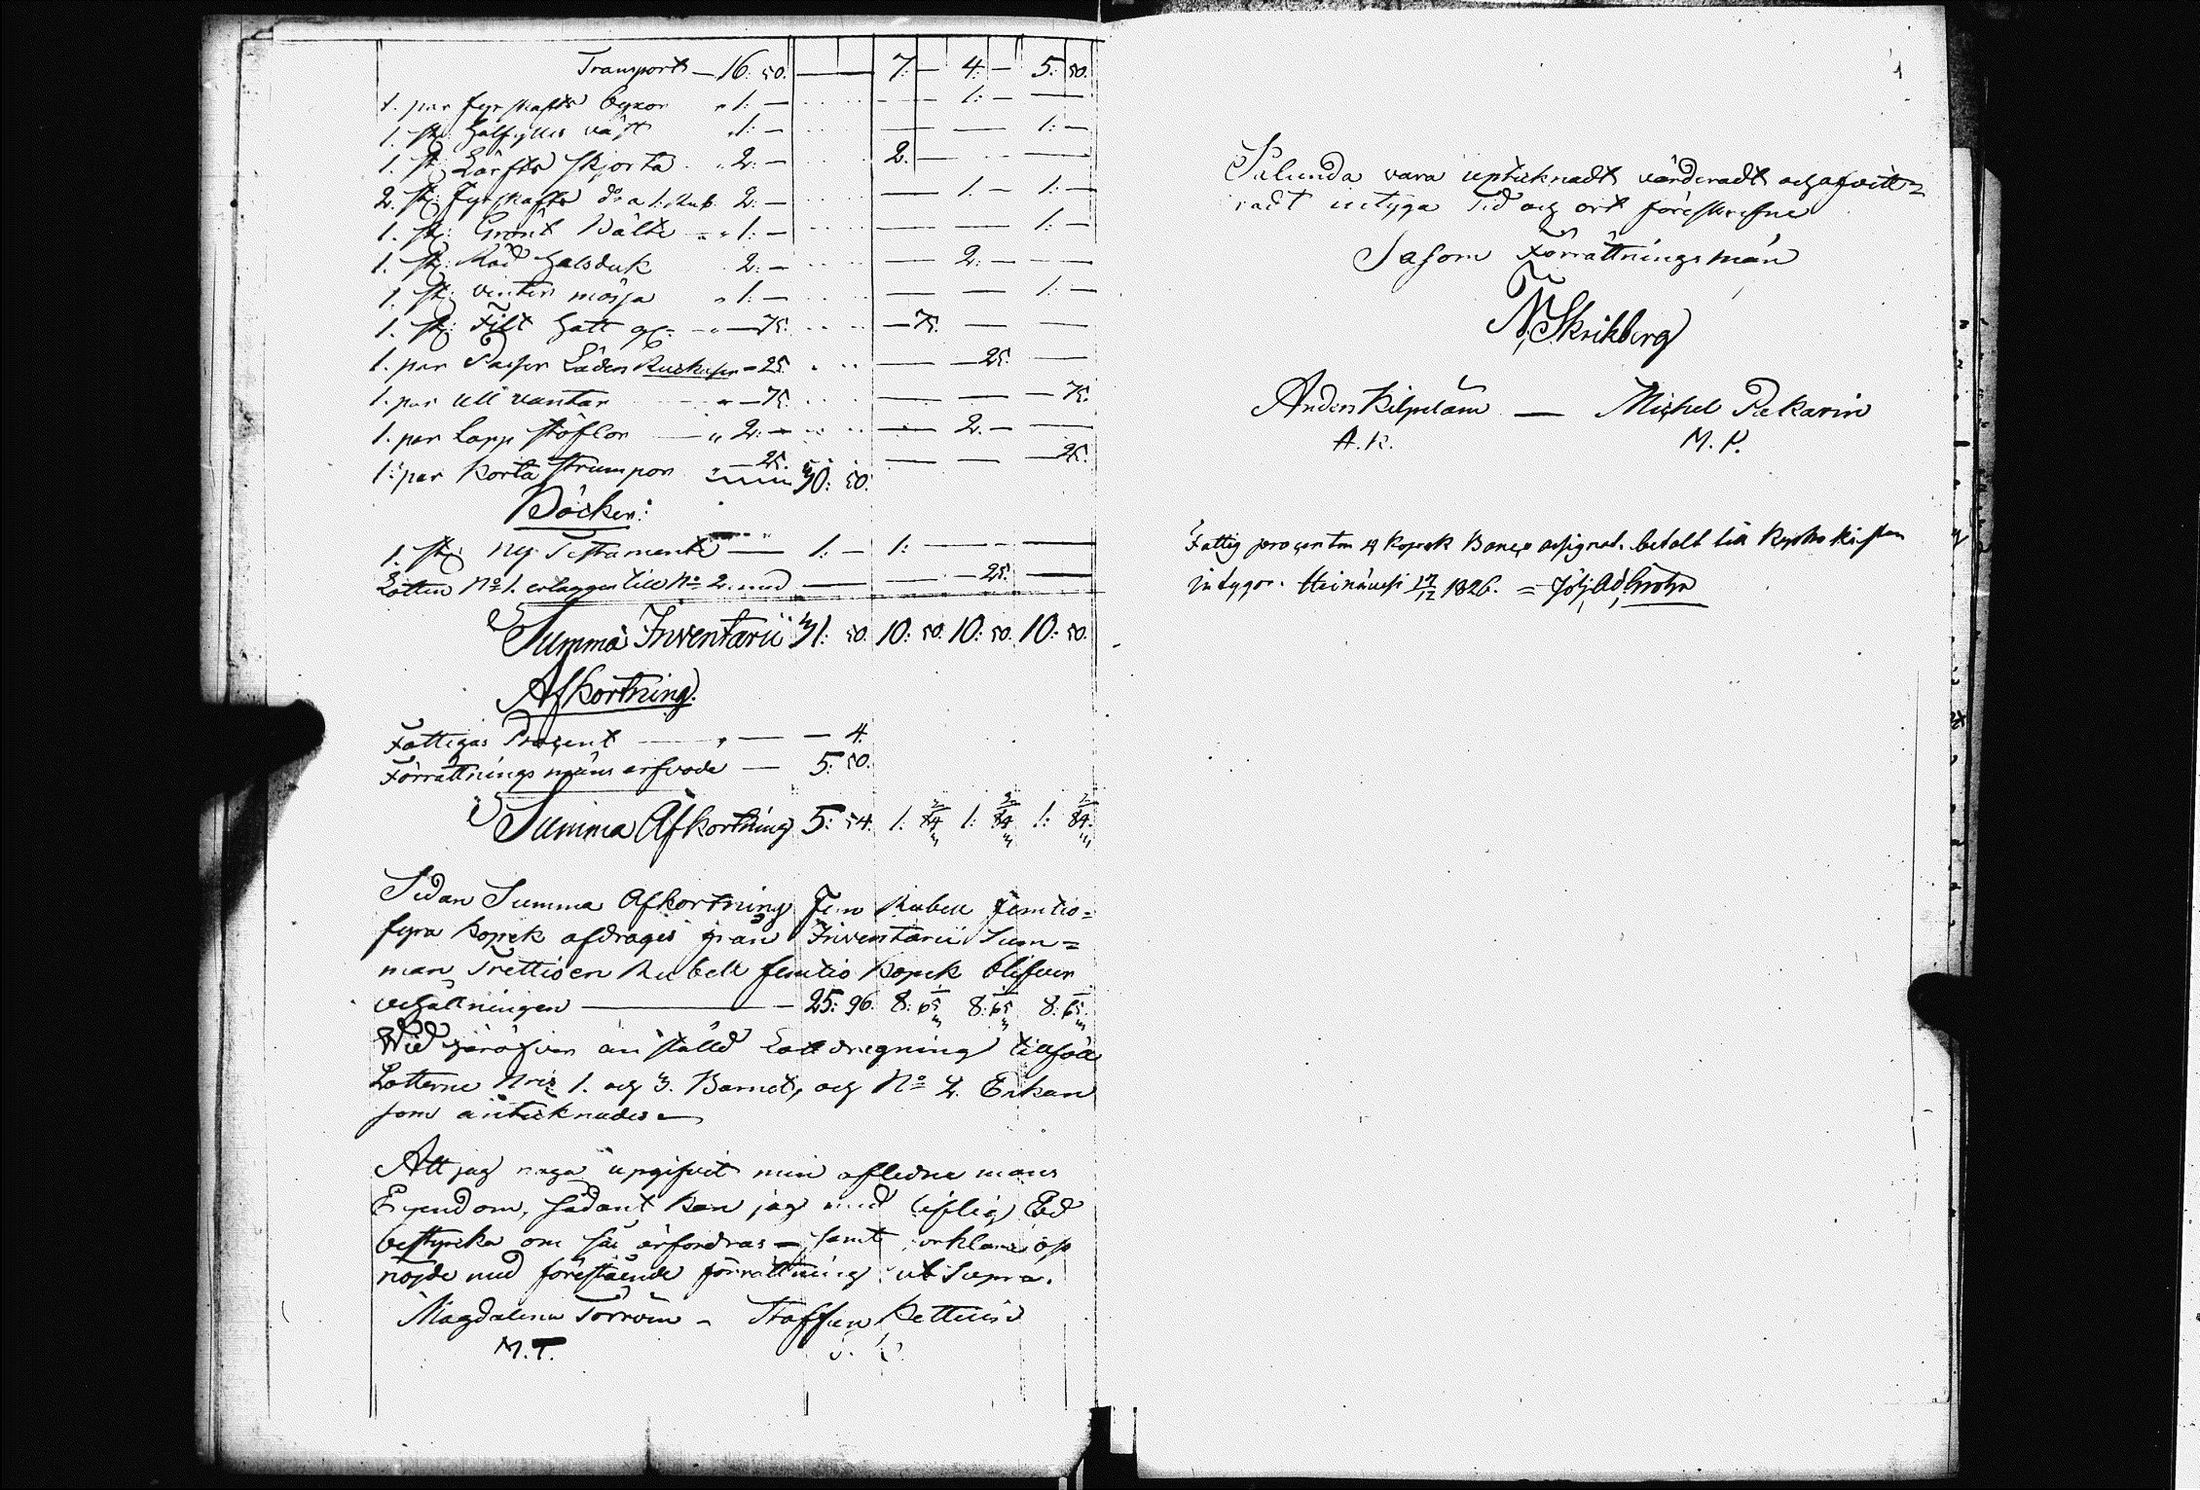 Transport — 16: 50. — 7: — 4: — 5: 50.
1. par fyrskafts byxor " 1: — — 1: — —
1. st: halfylles väst " 1: — — — 1: —
1. st: Lärfts skjorta " 2: — 2. — — —
2. st: fyrskafts d:o a 1. Rub. 2: — — 1: — 1: —
1. st: Grönt Bälte " 1: — — — 1: —
1. st: Röd halsduk 2: — — 2: — —
1. st: vinter mössa " 1: — — — 1: —
1. st: Filt hatt — 75. — 75. — —
1. par Läder — 25. — — 25. —
1. par ull vantar " — 75. — — — 75.
1. par Lapp stöflor " 2: — — 2. — —
1: par korta strumpor " — 25. 30: 50. — — — 25.
Böcker:
1. st: Ny Testamente — 1: — 1: — — —
Lotten N:o 1. erlägger till N:o 2. med — — — 25. —
Summa Inventarii 31: 50. 10: 50. 10: 50. 10: 50.
Afkortning.
Fattigas Procent — " — — 4.
Förrättnings mäns arfvode — 5: 50.
Summa Afkortning 5: 54. 1: 84 2/3 1: 84 2/3 1: 84 2/3
Sedan Summa Afkortning Fem Rubel femtio=
fyra kopek afdrages från Inventarii Sum=
man Trettioen Rubel femtio kopek blifver
behållningen — 25: 96. 8: 65 1/3 8: 65 1/3 8: 65 1/3
Wid häröfver an ställd Lottdragning tillföll
Lotterne N:ris 1. och 3. Barnet, och N:o 2. Enkan
som antecknades —
Att jag noga upgifvit min afledne mans
Egendom, sådant kan jag med liflig Ed
bestyrka om så erfordras — samt förklara oss
nöjde med förestående förrättning ut Supra.
Magdalena Torvoin — Staffan Kettuin
M.T. S. K.
1
Sålunda vara uptecknadt värderadt och afvitt=
radt intyga Tid och ort föreskrefne
Såsom Förrättningsmän
N. Skrikberg
Anders Kilpeläin — Michel Pekarin
A.K. M.P.
Fattig procenten 4 kopek Banco assignat. betalt till Kyrko kistan
intygar. Heinävesi 17/12 1826. =